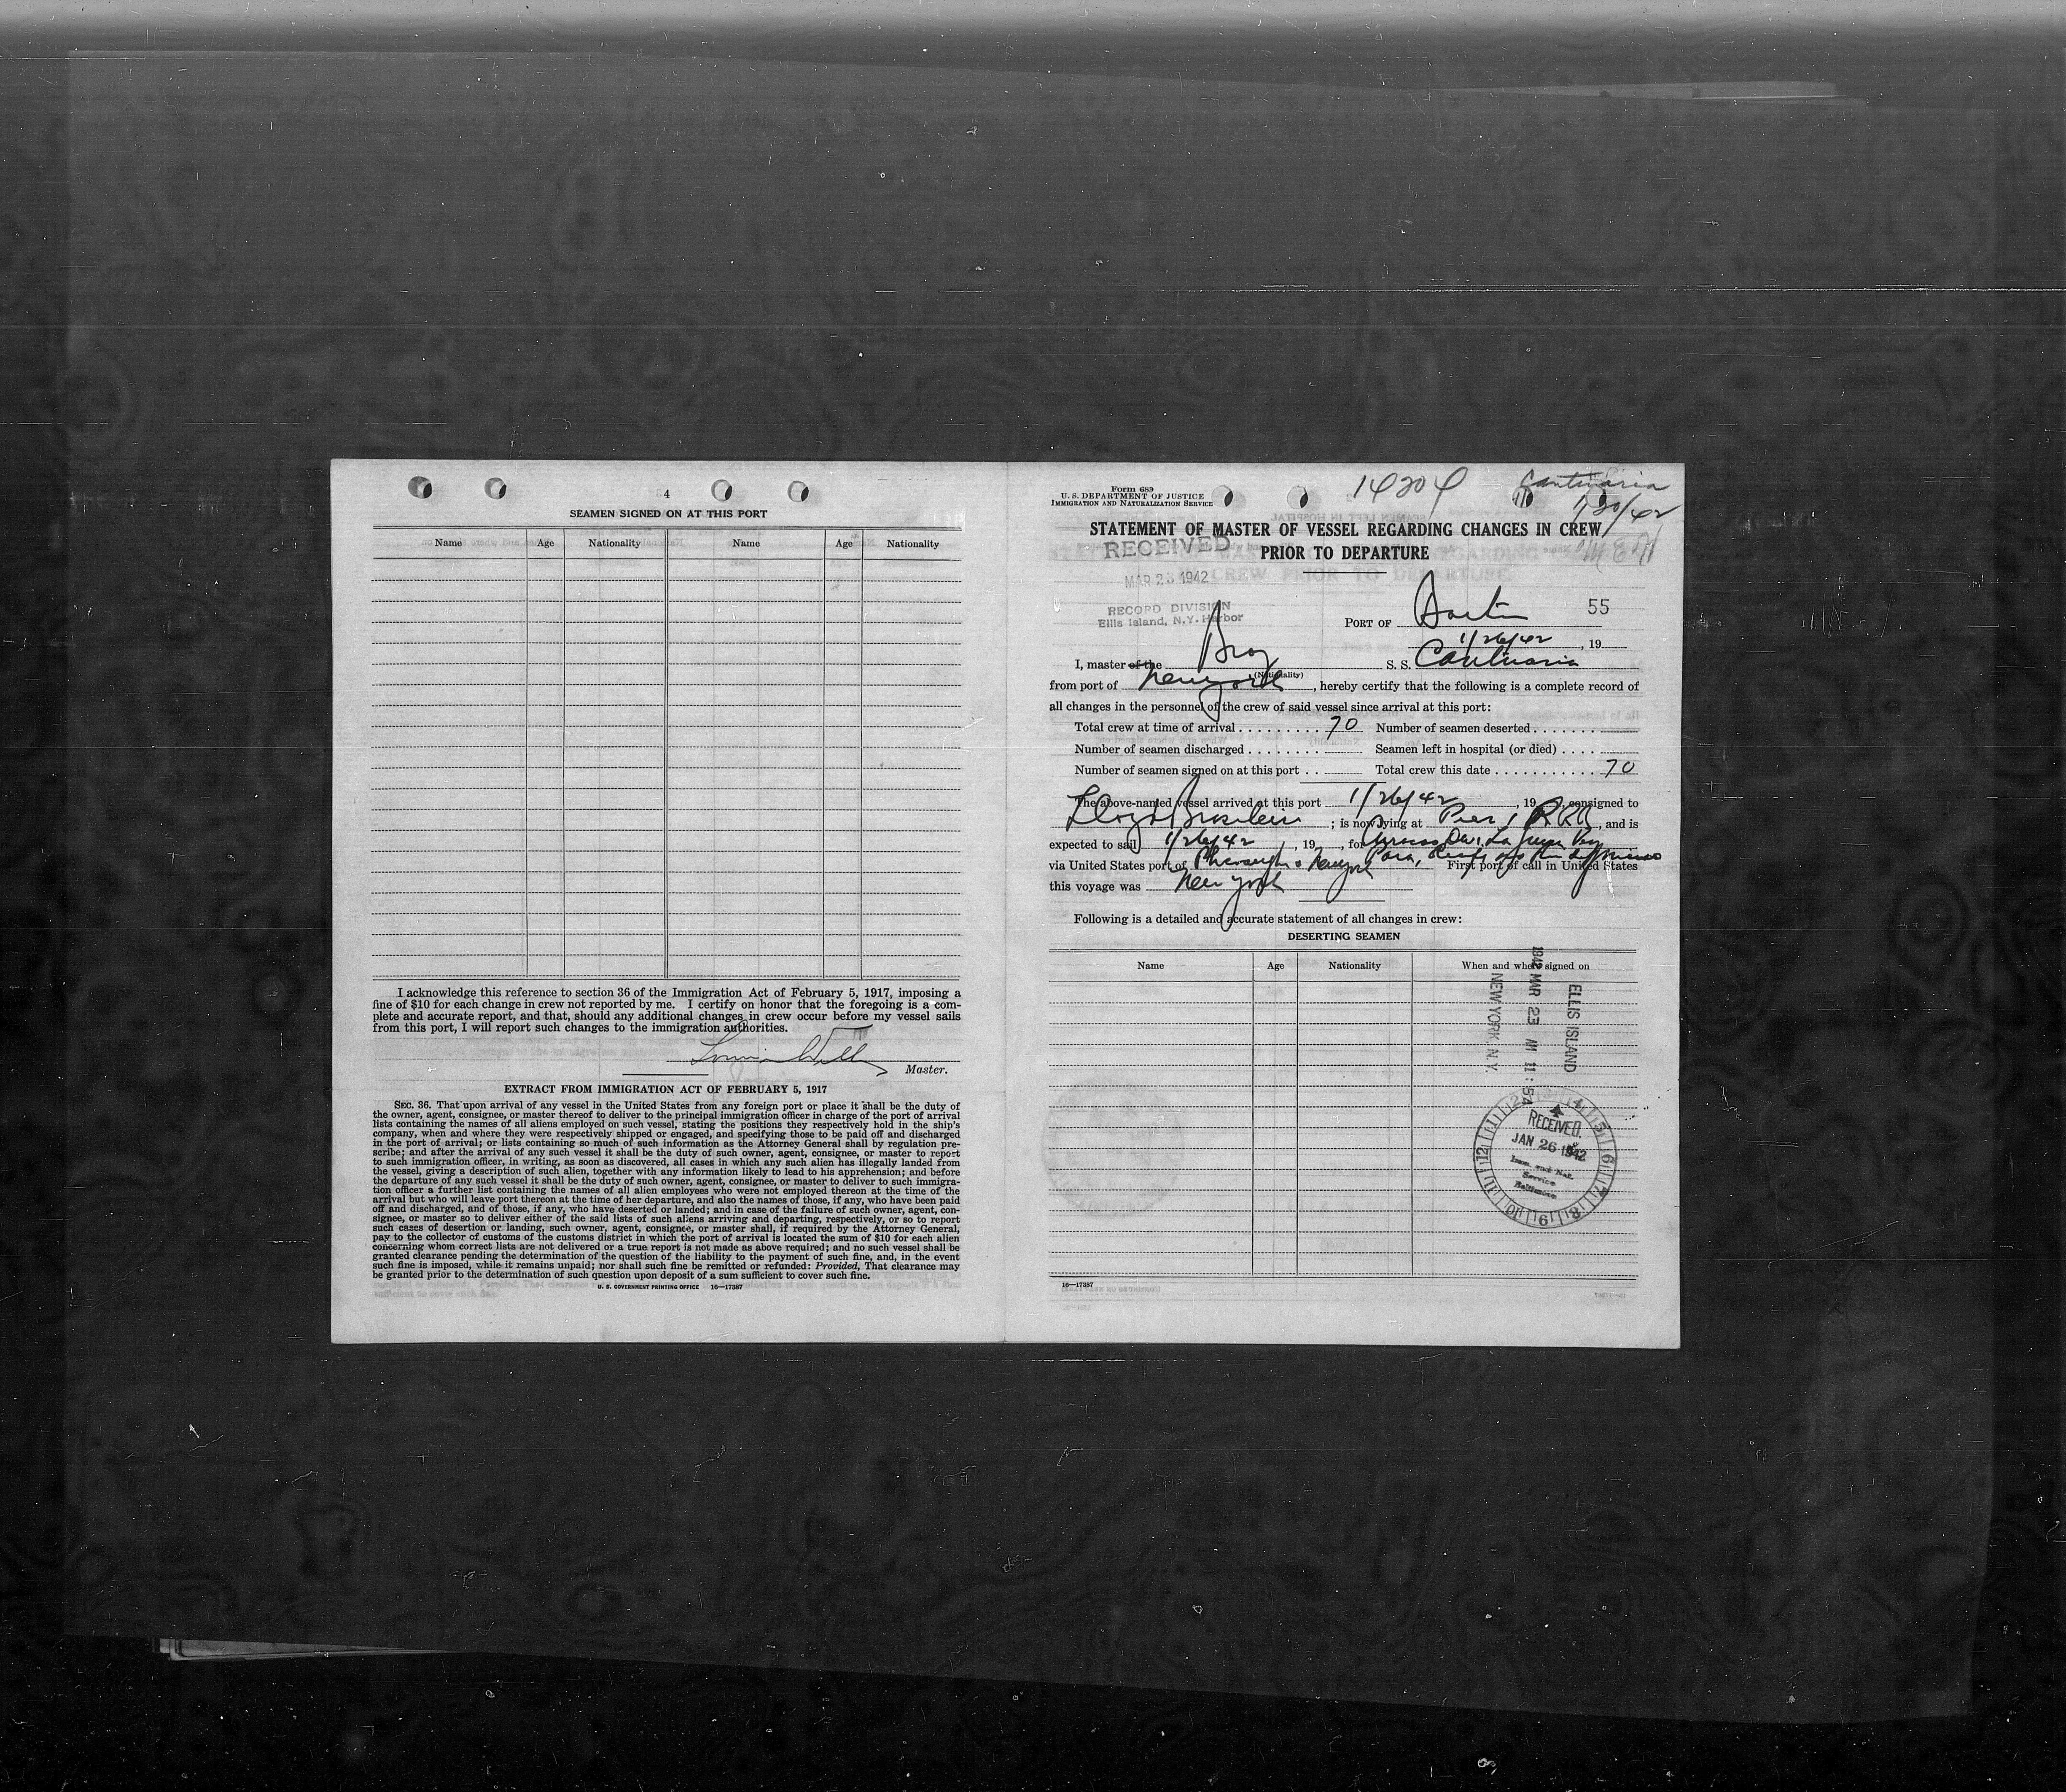 4
SEAMEN SIGNED ON AT THIS PORT
Name Age Nationality Name Age Nationality
I acknowledge this reference to section 36 of the Immigration Act of February 5, 1917, imposing a
fine of $10 for each change in crew not reported by me. I certify on honor that the foregoing is a com-
plete and accurate report, and that, should any additional changes in crew occur before my vessel sails
from this port, I will report such changes to the immigration authorities.
Master.
EXTRACT FROM IMMIGRATION ACT OF FEBRUARY 5, 1917
SEC. 36. That upon arrival of any vessel in the United States from any foreign port or place it shall be the duty of
the owner, agent, consignee, or master thereof to deliver to the principal immigration officer in charge of the port of arrival
lists containing the names of all aliens employed on such vessel, stating the positions they respectively hold in the ship's
company, when and where they were respectively shipped or engaged, and specifying those to be paid off and discharged
in the port of arrival; or lists containing so much of such information as the Attorney General shall by regulation pre-
scribe; and after the arrival of any such vessel it shall be the duty of such owner, agent, consignee, or master to report
to such immigration officer, in writing, as soon as discovered, all cases in which any such alien has illegally landed from
the vessel, giving a description of such alien, together with any information likely to lead to his apprehension; and before
the departure of any such vessel it shall be the duty of such owner, agent, consignee, or master to deliver to such immigra-
tion officer a further list containing the names of all alien employees who were not employed thereon at the time of the
arrival but who will leave port thereon at the time of her departure, and also the names of those, if any, who have been paid
off and discharged, and of those, if any, who have deserted or landed; and in case of the failure of such owner, agent, con-
signee, or master so to deliver either of the said lists of such aliens arriving and departing, respectively, or so to report
such cases of desertion or landing, such owner, agent, consignee, or master shall, if required by the Attorney General,
pay to the collector of customs of the customs district in which the port of arrival is located the sum of $10 for each alien
concerning whom correct lists are not delivered or a true report is not made as above required; and no such vessel shall be
granted clearance pending the determination of the question of the liability to the payment of such fine, and, in the event
such fine is imposed, while it remains unpaid; nor shall such fine be remitted or refunded: Provided, That clearance may
be granted prior to the determination of such question upon deposit of a sum sufficient to cover such fine.
U. S. GOVERNMENT PRINTING OFFICE 16—17387
Form 689
U. S. DEPARTMENT OF JUSTICE
IMMIGRATION AND NATURALIZATION SERVICE
14204
Cantuaria
1/30/42
STATEMENT OF MASTER OF VESSEL REGARDING CHANGES IN CREW
PRIOR TO DEPARTURE
RECEIVED
MAR 23 1942
RECORD DIVISION
Ellis Island, N.Y. Harbor
PORT OF 55
1/26/42, 19
I, master of the Braz S. S. Cantuaria
(Nationality)
from port of New York, hereby certify that the following is a complete record of
all changes in the personnel of the crew of said vessel since arrival at this port:
Total crew at time of arrival 70 Number of seamen deserted
Number of seamen discharged Seamen left in hospital (or died)
Number of seamen signed on at this port Total crew this date 70
The above-named vessel arrived at this port 1/26/42, 19, consigned to
Lloyd Brasileiro; is now lying at Pier 1, and is
expected to sail 1/26/42, 19, for La
via United States port of New York First port of call in United States
this voyage was New York
Following is a detailed and accurate statement of all changes in crew:
DESERTING SEAMEN
Name Age Nationality When and where signed on
ELLIS ISLAND
1942 MAR 23 AM 11:54
NEW YORK N. Y.
RECEIVED
JAN 26 1942
Imm. and Nat.
Service
Baltimore
16—17387